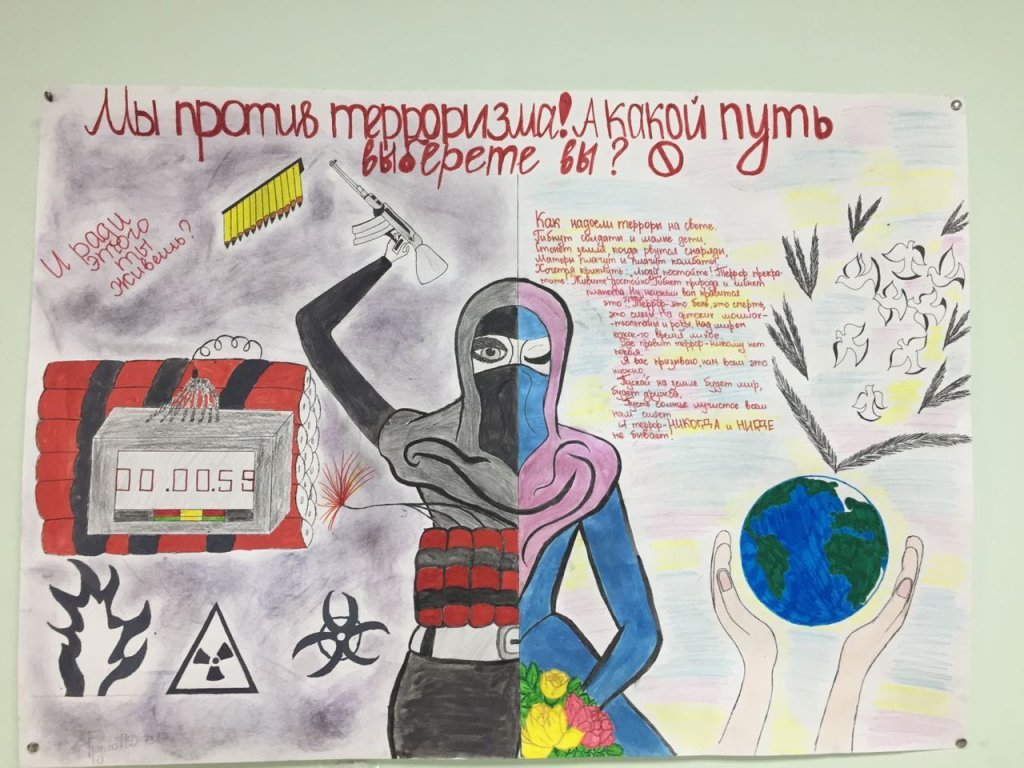 Мы против терроризма! А какой путь
выберете вы?
И ради
этого
ты
живёшь?
Как надоели терроры на свете.
Гибнут солдаты и малые дети,
Стонет земля, когда рвутся снаряды,
Матери плачут и плачут комбаты.
Хочется крикнуть: "Люди, постойте! Террор прекра-
тите! Живите достойно! Гибнет природа и гибнет
планета. Ну неужели вам нравится
это? Террор-это боль, это смерть,
это слёзы, На детских могилах-
тюльпаны и розы. Над миром
какое-то время лихое,
Где правит террор-никому нет
покоя.
Я вас призываю, нам всем это
нужно.
Пускай на земле будет мир,
будет дружба,
Пусть солнце лучистое всем
нам сияет
И террор-НИКОГДА и НИГДЕ
не бывает!
00.00.59